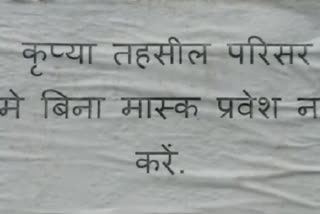 कृप्या तहसील परिसर
मे बिना मास्क प्रवेश न
करें.